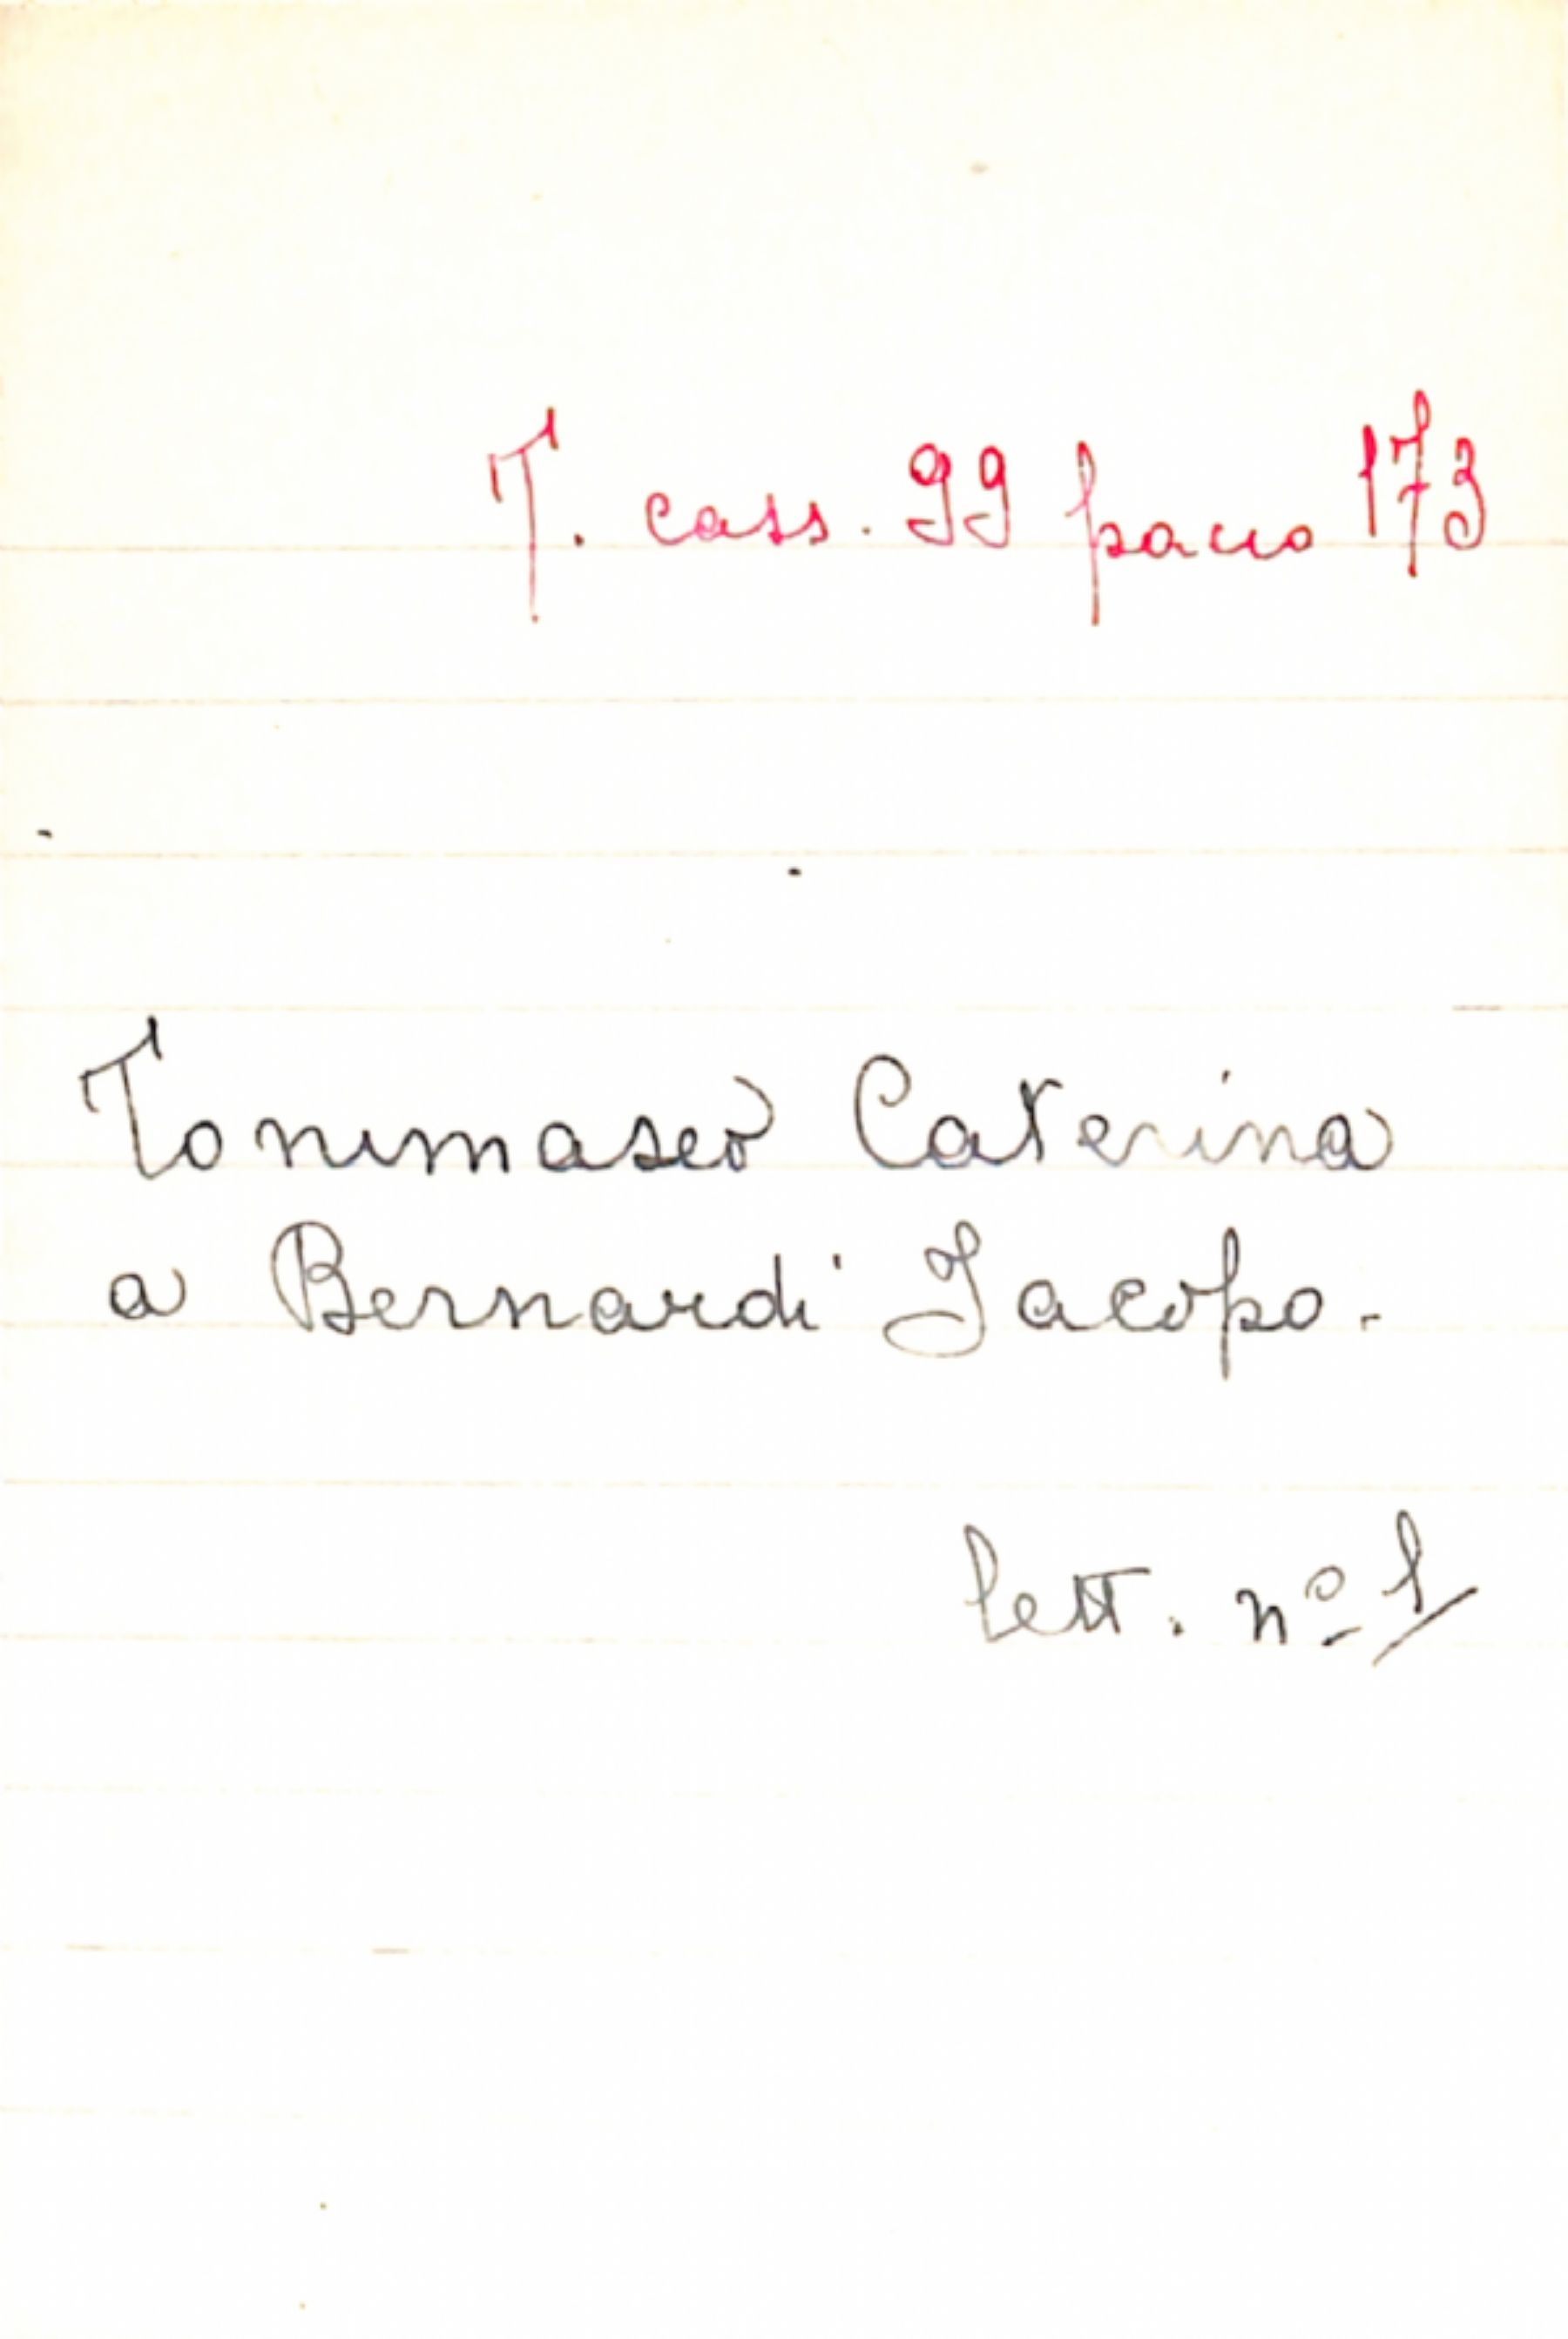 T. cass. 99 pacco 173
Tommaseo Caterina
a Bernardi Jacopo.
lett. nº 1